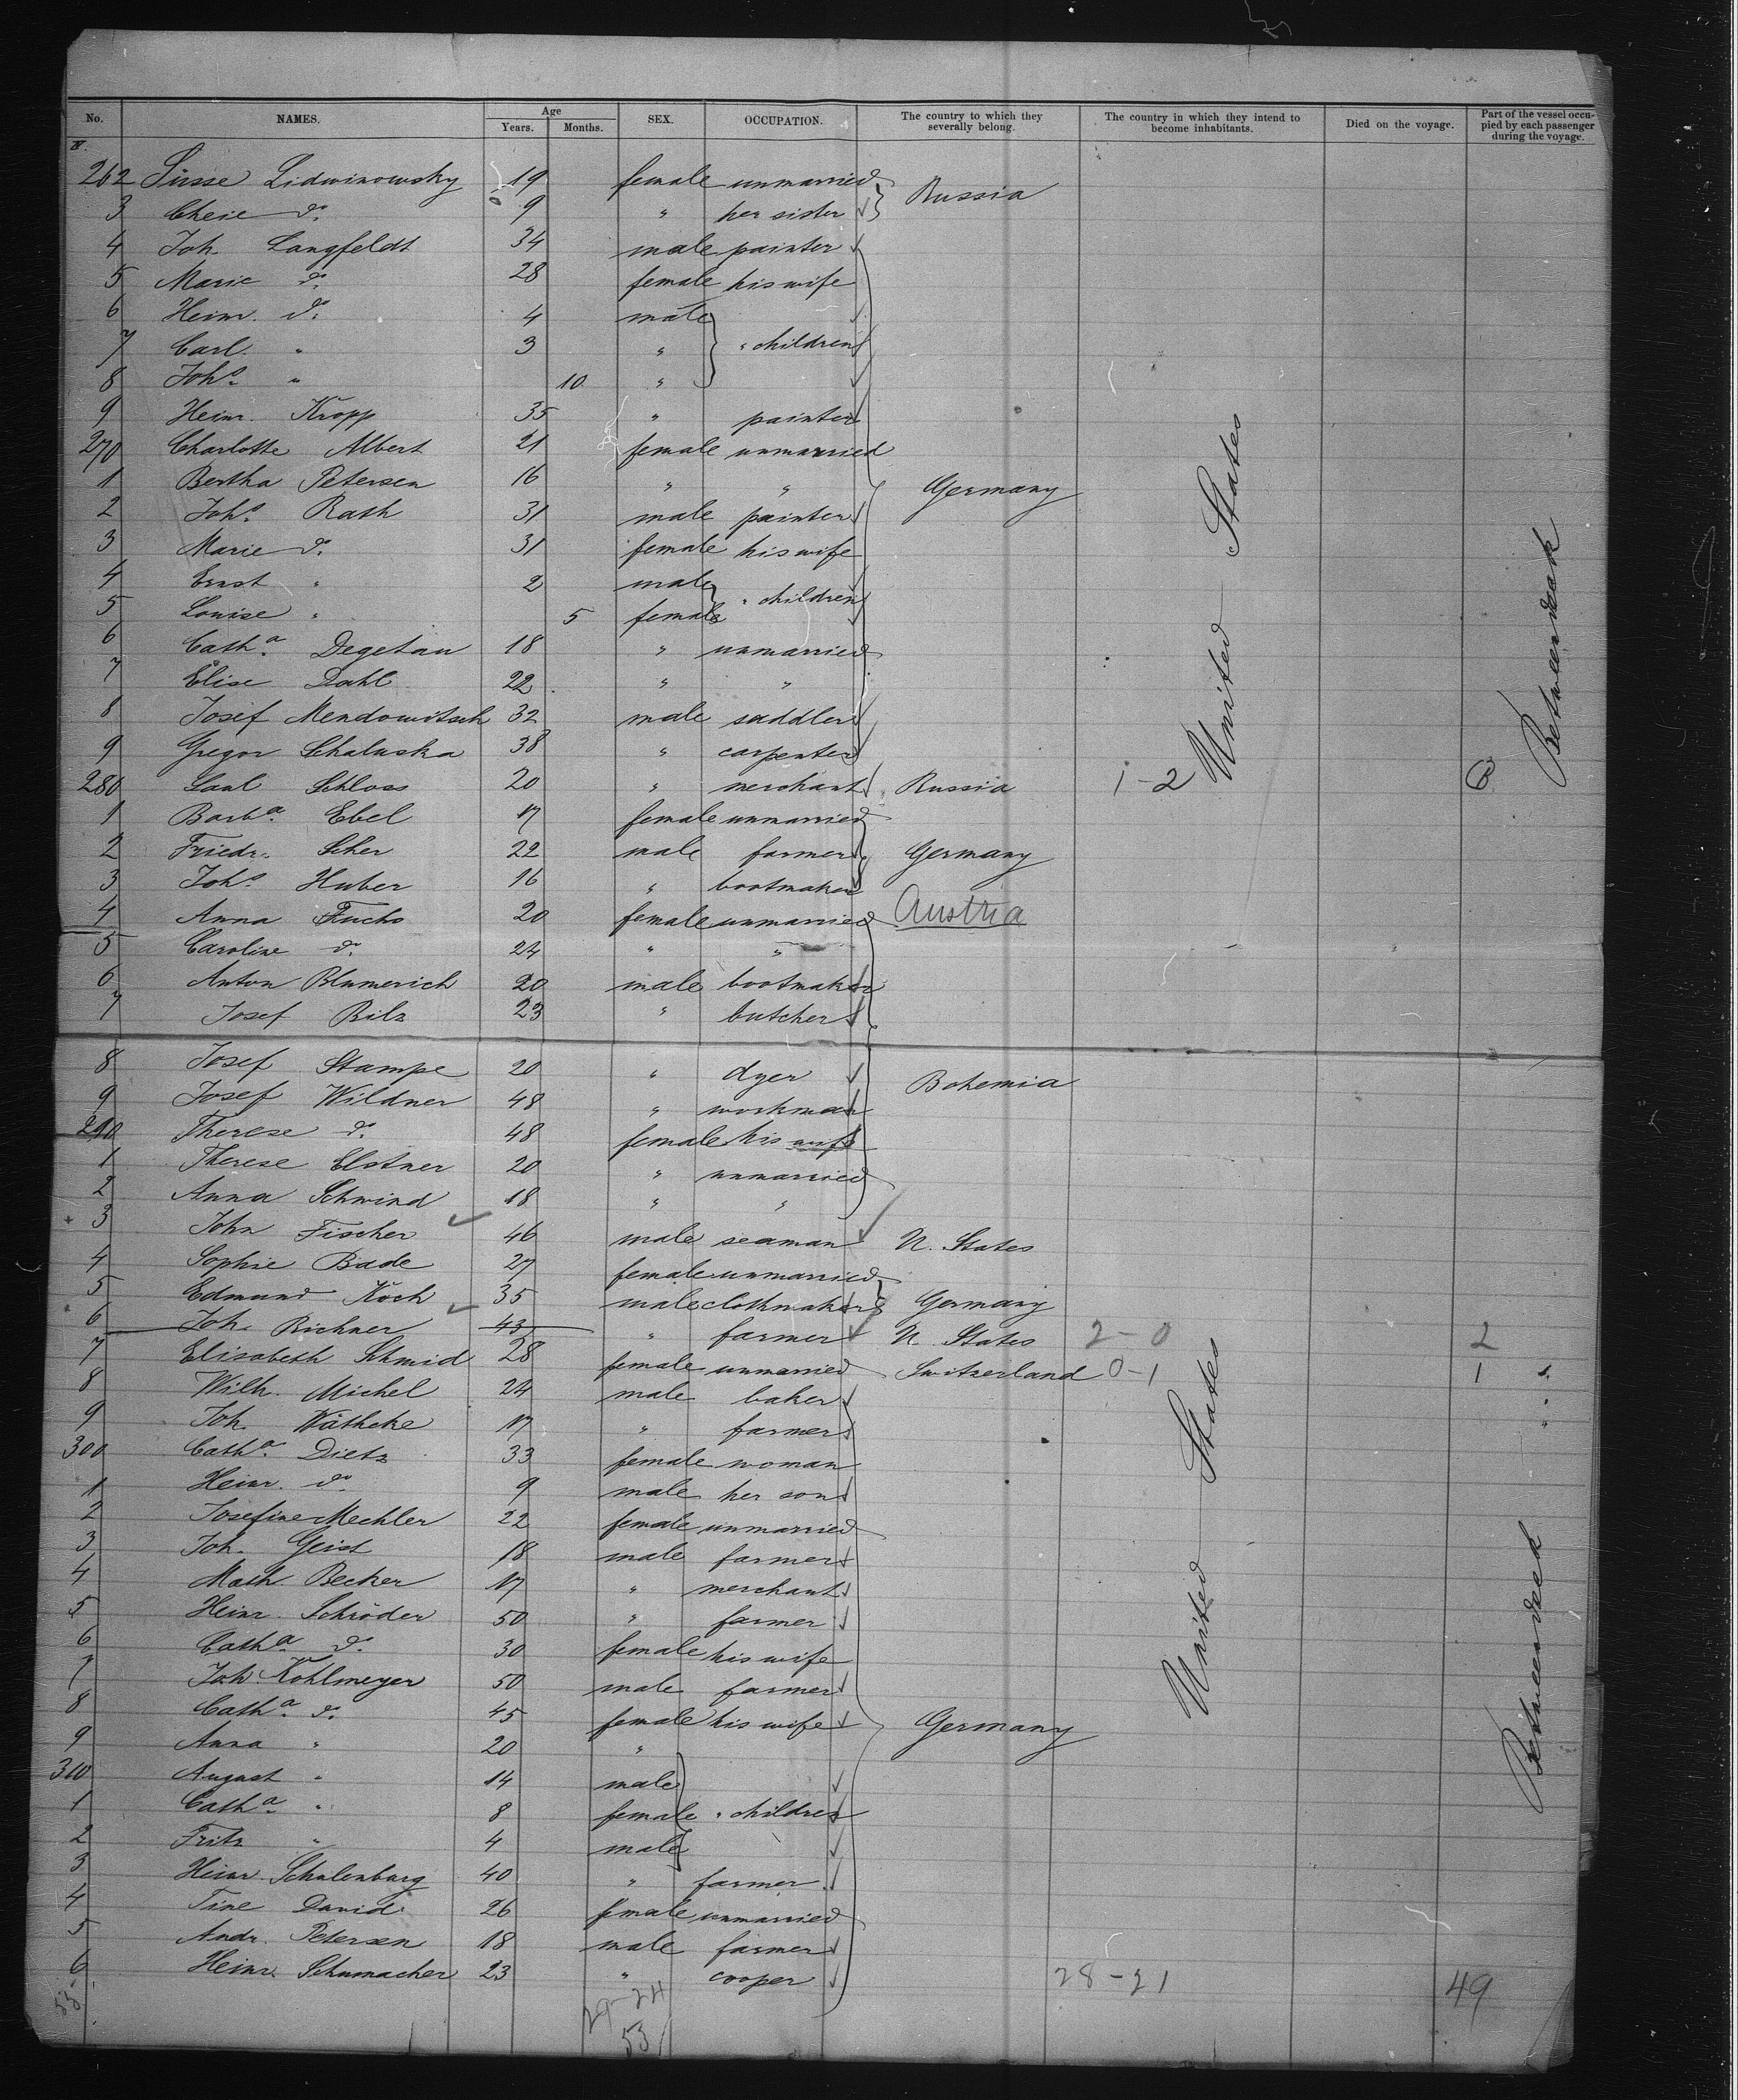 No. NAMES. Age Years. Months. SEX. OCCUPATION. The country to which they severally belong. The country in which they intend to become inhabitants. Died on the voyage. Part of the vessel occupied by each passenger during the voyage.
262 Süsse Lidwinowsky 19 female unmarried Russia
3 Cheie do. 9 " her sister
4 Joh. Langfeldt 34 male painter
5 Marie do. 28 female his wife
6 Heinr. do. 4 male
7 Carl " 3 " " children
8 Johs. " 10 "
9 Heinr. Kropp 35 " painter
270 Charlotte Albert 21 female unmarried
1 Bertha Petersen 16 " " Germany
2 Johs. Rath 31 male painter
3 Marie do. 31 female his wife
4 Ernst " 2 male " children
5 Louise " 5 female
6 Catha. Degetau 18 " unmarried
7 Elise Dahl 22 " "
8 Josef Mendowitsch 32 male saddler
9 Gregor Schaluska 38 " carpenter
280 Saul Schloss 20 " merchant Russia 1-2 United States 6 Betweendeck
1 Barba. Ebel 17 female unmarried
2 Friedr. Scher 22 male farmer Germany
3 Johs. Huber 16 " bootmaker
4 Anna Fuchs 20 female unmarried Austria
5 Caroline do. 24 " "
6 Anton Blumerich 20 male bootmaker
7 Josef Bilz 23 " butcher
8 Josef Stampe 20 " dyer Bohemia
9 Josef Wildner 48 " workman
290 Therese do. 48 female his wife
1 Therese Elstner 20 " unmarried
2 Anna Schwind 18 " "
3 John Fischer 46 male seaman U. States
4 Sophie Bade 27 female unmarried
5 Edmund Koch 35 male clothmaker Germany
6 Joh. Richner 43 " farmer U. States 2-0 2
7 Elisabeth Schmid 28 female unmarried Switzerland 0-1 1 "
8 Wilh. Michel 24 male baker
9 Joh. Wäthcke 17 " farmer "
300 Catha. Dietz 33 female woman
1 Heinr. do. 9 male her son
2 Josefine Mechler 22 female unmarried
3 Joh. Geist 18 male farmer
4 Math. Becker 17 " merchant
5 Heinr. Schröder 50 " farmer
6 Catha. do. 30 female his wife
7 Joh. Kohlmeyer 50 male farmer
8 Catha. do. 45 female his wife Germany United States Betweendeck
9 Anna " 20 "
310 August " 14 male
1 Catha. " 8 female " children
2 Fritz " 4 male
3 Heinr. Schulenburg 40 " farmer
4 Tine David 26 female unmarried
5 Andr. Petersen 18 male farmer
6 Heinr. Schumacher 23 " cooper 28-21 49
53 29-24
53